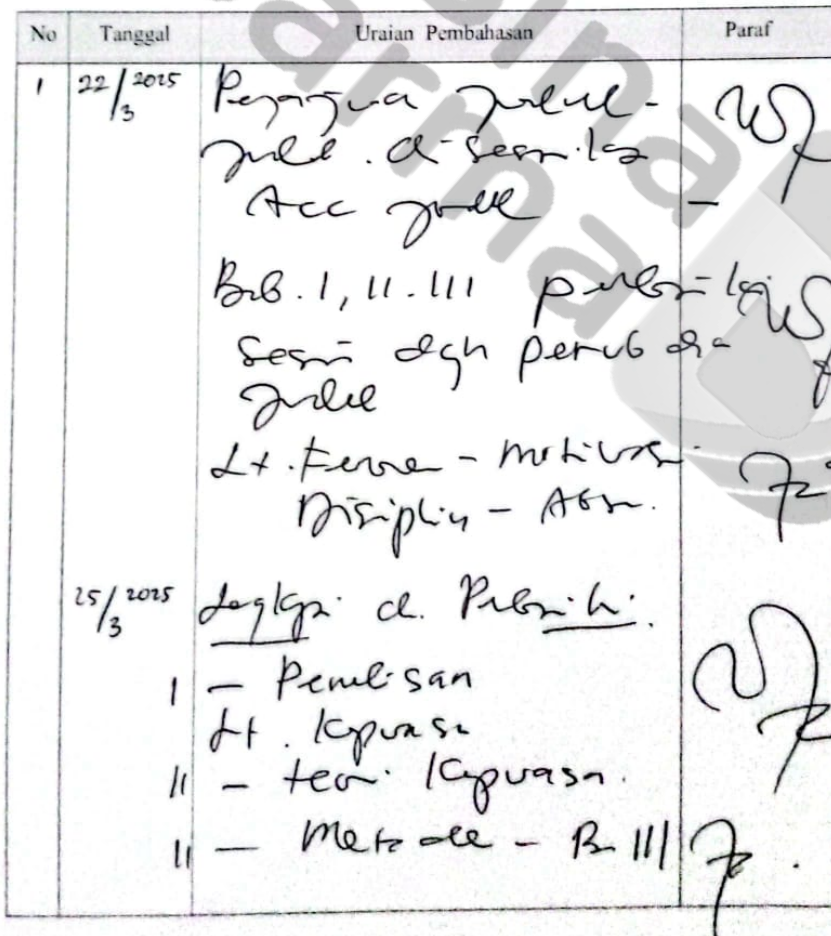 No Tanggal Uraian Pembahasan Paraf
1 22/3 2025 Pengajuan judul-
judul
Acc judul -
Bab. I, II. III perbaiki
Sesuai dgn perubahan
judul
Lt. - Motivasi
Disiplin -
25/3 2025 Lengkapi d. Perbaiki.
I - Penulisan
Lt. Kepuasan
II - teori Kepuasan.
II - Metode - B III